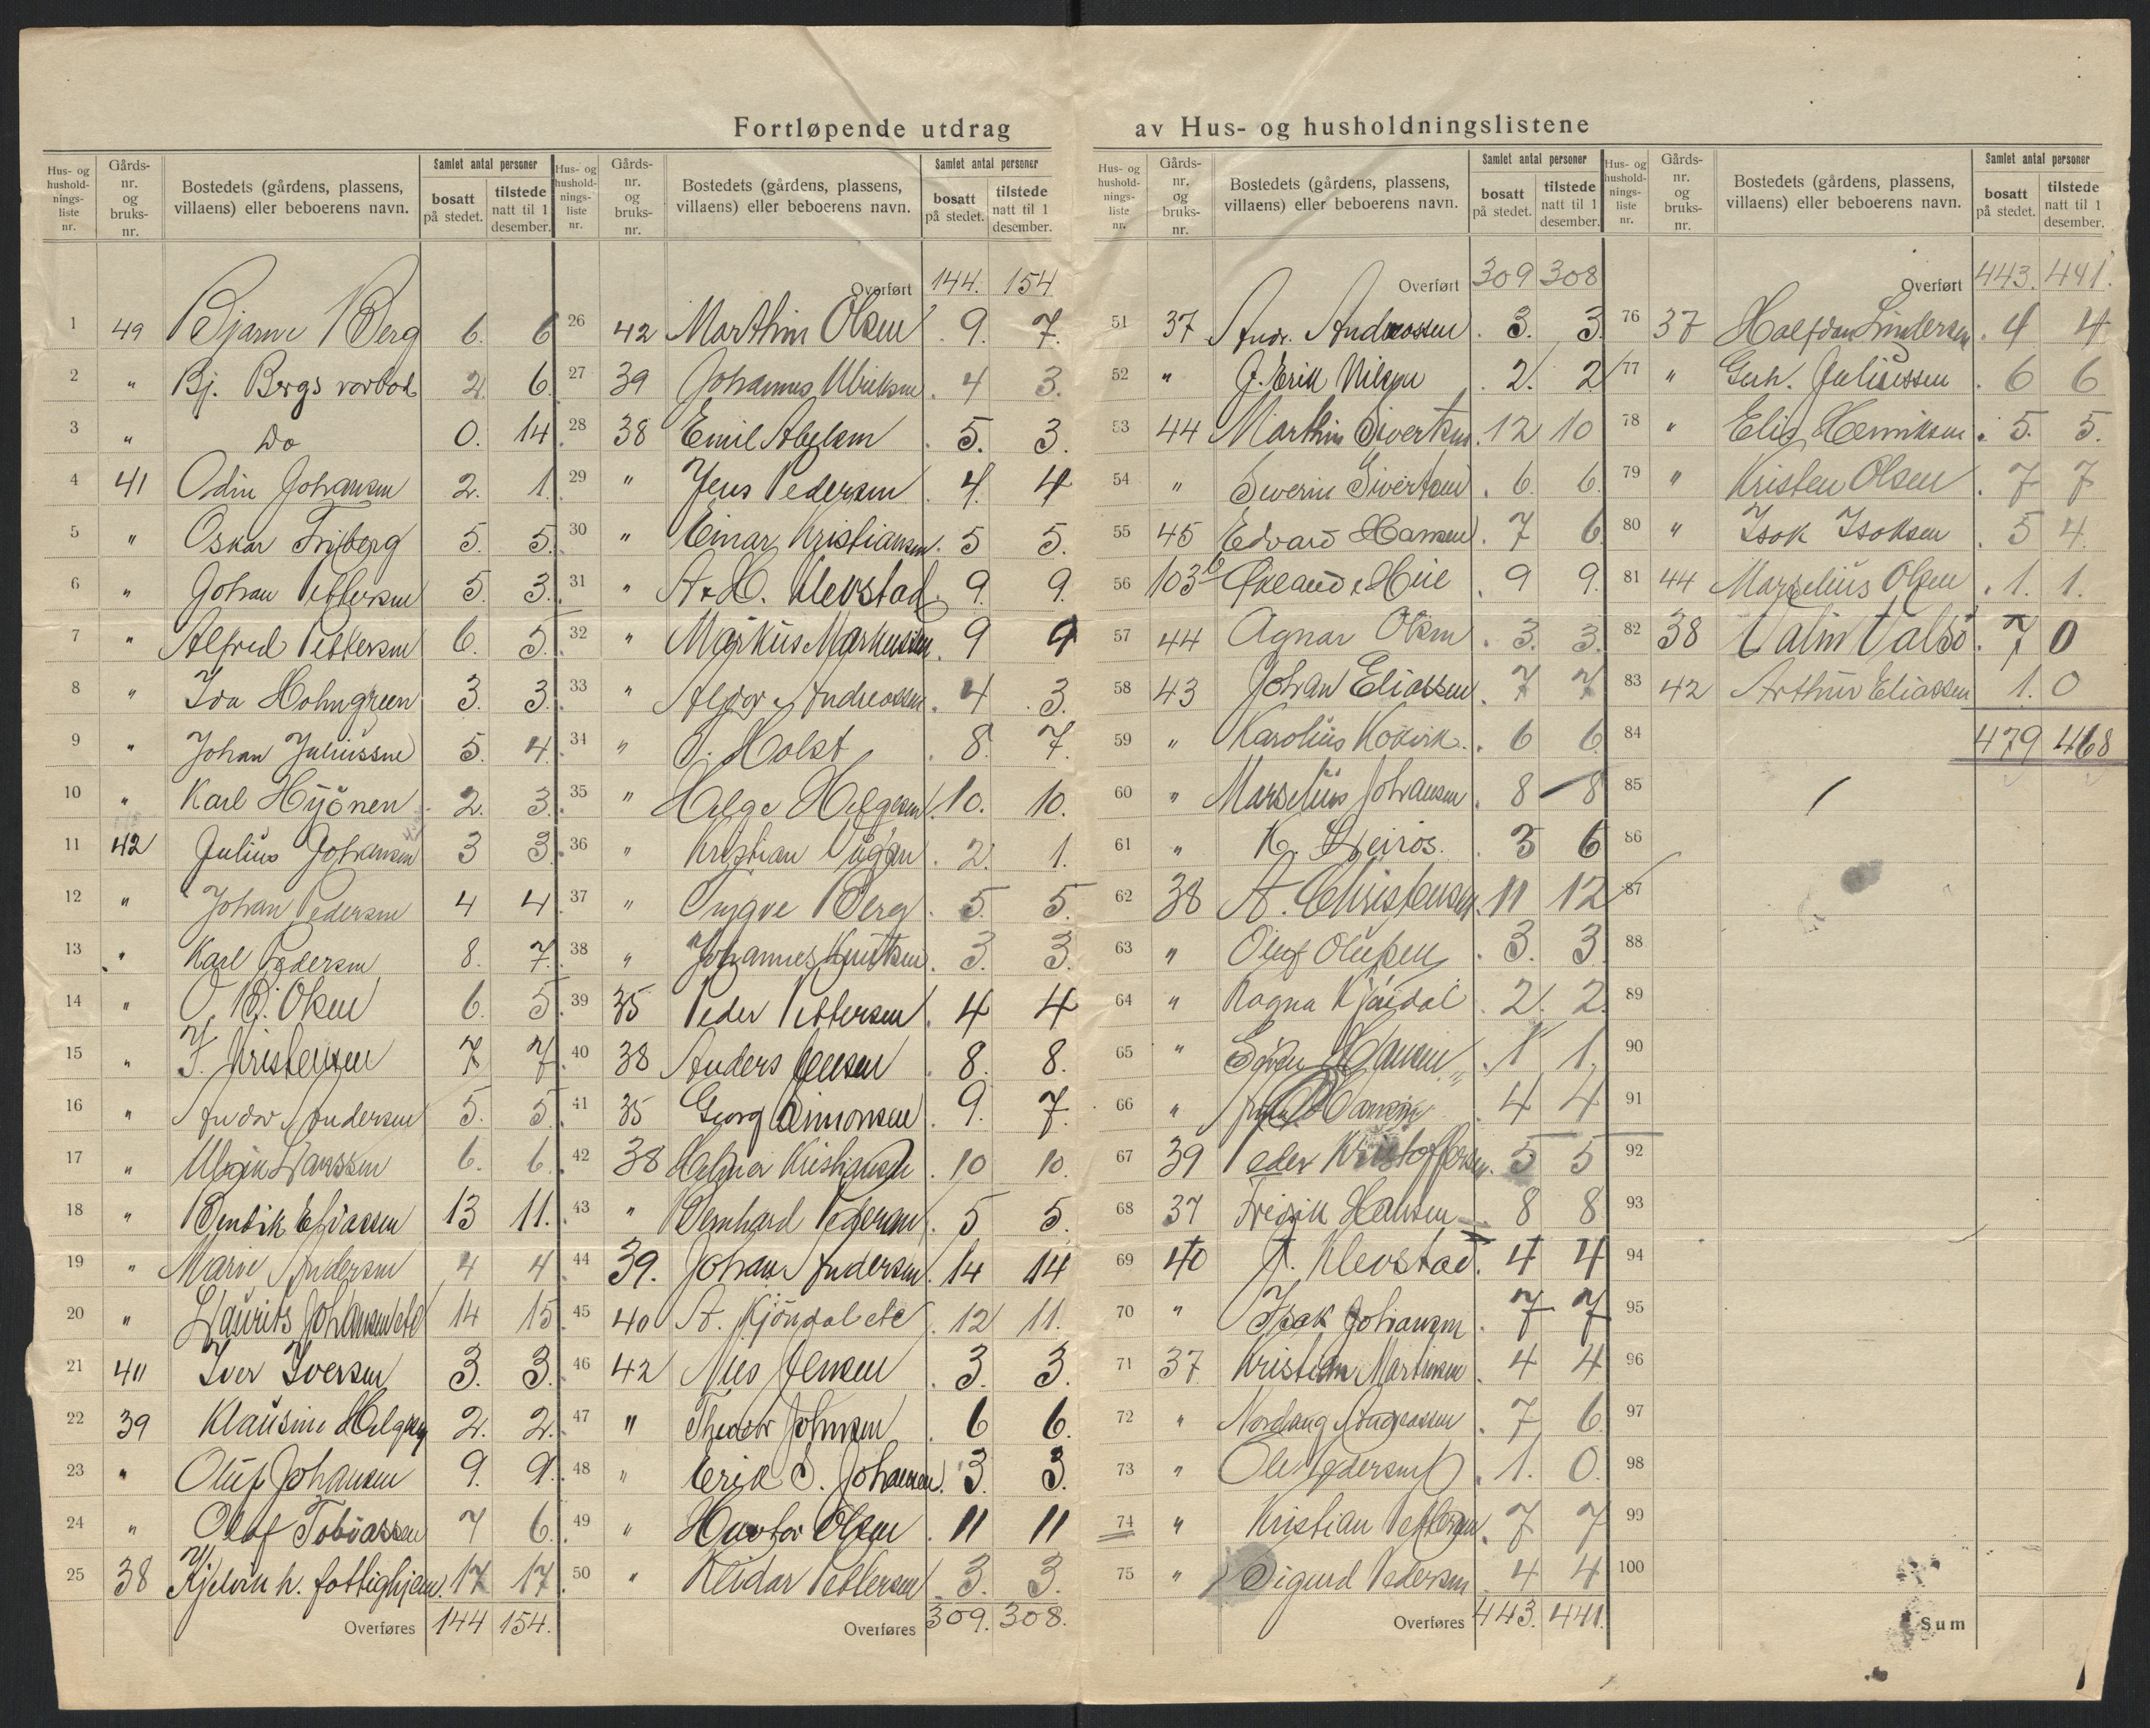 Fortløpende utdrag av Hus- og husholdningslistene
Hus- og hushold-nings-liste nr. | Gårds-nr. og bruks-nr. | Bostedets (gårdens, plassens, villaens) eller beboerens navn. | Samlet antal personer | bosatt på stedet. | tilstede natt til 1 desember.
1 49 Bjarne Berg 6. 6
2 " Bj. Bergs rorbod 2 6.
3 " Do 0. 14
4 41 Odin Johansen 2. 1.
5 " Oskar Friberg 5. 5.
6 " Johan Pettersen 5. 3.
7 " Alfred Pettersen 6. 5.
8 " Ida Holmgreen 3. 3.
9 " Johan Juliussen 5. 4.
10 " Karl Hyönen 2. 3.
11 42 Julius Johansen 3 3.
12 " Johan Pedersen 4 4.
13 " Karl Pedersen 8. 7.
14 " O. Bj. Olsen 6. 5.
15 " J. Kristensen 7 7.
16 " Andor Andersen 5. 5.
17 " Ulrik Larssen 6. 6.
18 " Bendik Eliassen 13 11.
19 " Marie Andersen 4 4.
20 " Laurits Johansen etc 14 15.
21 40 Iver Iversen 3. 3.
22 39 Klausine Helgesen 2. 2.
23 " Oluf Johansen 9. 9.
24 " Olaf Tobiassen 7 6.
25 38 Kjelvik h. fattighjem. 17 17
Overføres 144 154.
Hus- og hushold-nings-liste nr. | Gårds-nr. og bruks-nr. | Bostedets (gårdens, plassens, villaens) eller beboerens navn. | Samlet antal personer | bosatt på stedet. | tilstede natt til 1 desember.
Overført 144. 154
26 42 Marthin Olsen 9. 7.
27 39 Johannes Ulriksen 4 3.
28 38 Emil Abelsen 5. 3.
29 " Jens Pedersen 4. 4
30 " Einar Kristiansen 5 5.
31 " A. H. Klevstad 9. 9.
32 " Markus Markussen 9 9
33 " Andreassen 4 3.
34 " Holst 8. 7.
35 " Helge Helgesen 10. 10.
36 " Kristian 2. 1.
37 " Yngve Berg 5. 5.
38 " Johannes Knutsen 3. 3.
39 35 Peder Pettersen 4 4
40 38 Anders Jensen 8. 8.
41 35 Georg Simonsen 9. 7.
42 38 Helmer Kristiansen 10 10.
43 " Bernhard Pedersen 5 5.
44 39. Johan Andersen 14 14
45 40 A. Kjöndal etc 12 11.
46 42 Nils Jensen 3. 3.
47 " Theodor Johnsen 6 6.
48 " Erik S. Johansen 3. 3.
49 " Havtor Olsen 11 11
50 " Reidar Pettersen 3. 3.
Overføres 309. 308.
Hus- og hushold-nings-liste nr. | Gårds-nr. og bruks-nr. | Bostedets (gårdens, plassens, villaens) eller beboerens navn. | Samlet antal personer | bosatt på stedet. | tilstede natt til 1 desember.
Overført 309 308
51 37 Andr. Andreassen 3. 3.
52 " J. Erik Nilsen 2. 2
53 44 Marthin Sivertsen 12 10
54 " Severin Sivertsen 6. 6.
55 45 Edvard Hansen 7 6.
56 103 9 9.
57 44 Agnar Olsen 3. 3.
58 43 Johan Eliassen 7 7
59 " Karolius Kokvik 6 6
60 " Marselius Johansen 8 8
61 " K. Leirós. 3 6
62 38 A. Christensen 11 12
63 " Oluf Olufsen 3. 3.
64 " Ragna Kjöndal 2. 2.
65 " Sören Hansen 1 1.
66 " Hansen 4 4
67 39 Peder Kristoffersen. 5 5
68 37 Fredrik Hansen 8 8
69 40 J. Klevstad. 4 4
70 " Isak Johansen 7 7
71 37 Kristian Martinsen 4 4
72 " Nordang Andreassen 7 6.
73 " Ole Pedersen 1. 0.
74 " Kristian Pettersen 7 7
75 " Sigurd Pedersen 4 4
Overføres 443. 441.
Hus- og hushold-nings-liste nr. | Gårds-nr. og bruks-nr. | Bostedets (gårdens, plassens, villaens) eller beboerens navn. | Samlet antal personer | bosatt på stedet. | tilstede natt til 1 desember.
Overført 443. 441.
76 37 Halfdan 4 4
77 " Gerh. Juliussen 6 6
78 " Elis Henriksen 5. 5.
79 " Kristen Olsen 7 7
80 " Isak Isaksen 5 4.
81 44 Marselius Olsen 1. 1.
82 38 Valm Valsö 7 0
83 42 Arthur Eliassen 1. 0
84 479 468
85
86
87
88
89
90
91
92
93
94
95
96
97
98
99
100
Sum